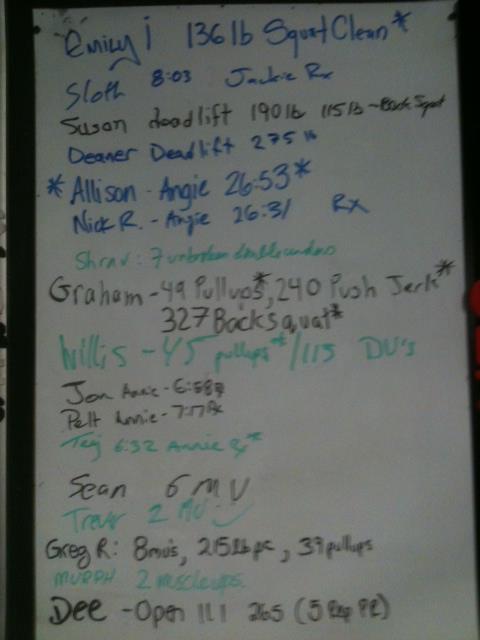 Emily i 136 lb Squat Clean*
Sloth 8:03 Jackie Rx
Susan deadlift 190 lb 115 lb - Back Squat
Deaner Deadlift 275 lb
* Allison - Angie 26:53 *
Nick R. - Angie 26:31 RX
Shrav: 7 unbroken double unders
Graham - 49 Pullups*, 240 Push Jerk*
327 Back squat*
Willis - 45 pullups* / 115 DU's
Jon Annie - 6:58
Pelt Annie - 7:17 Rx
Tej 6:32 Annie Rx*
Sean 6 MU
Trevr 2 MU
Greg R: 8mu's, 215lb pc, 37 pullups
MURPH 2 muscleups.
Dee - Open 11.1 265 (5 Rep PR)